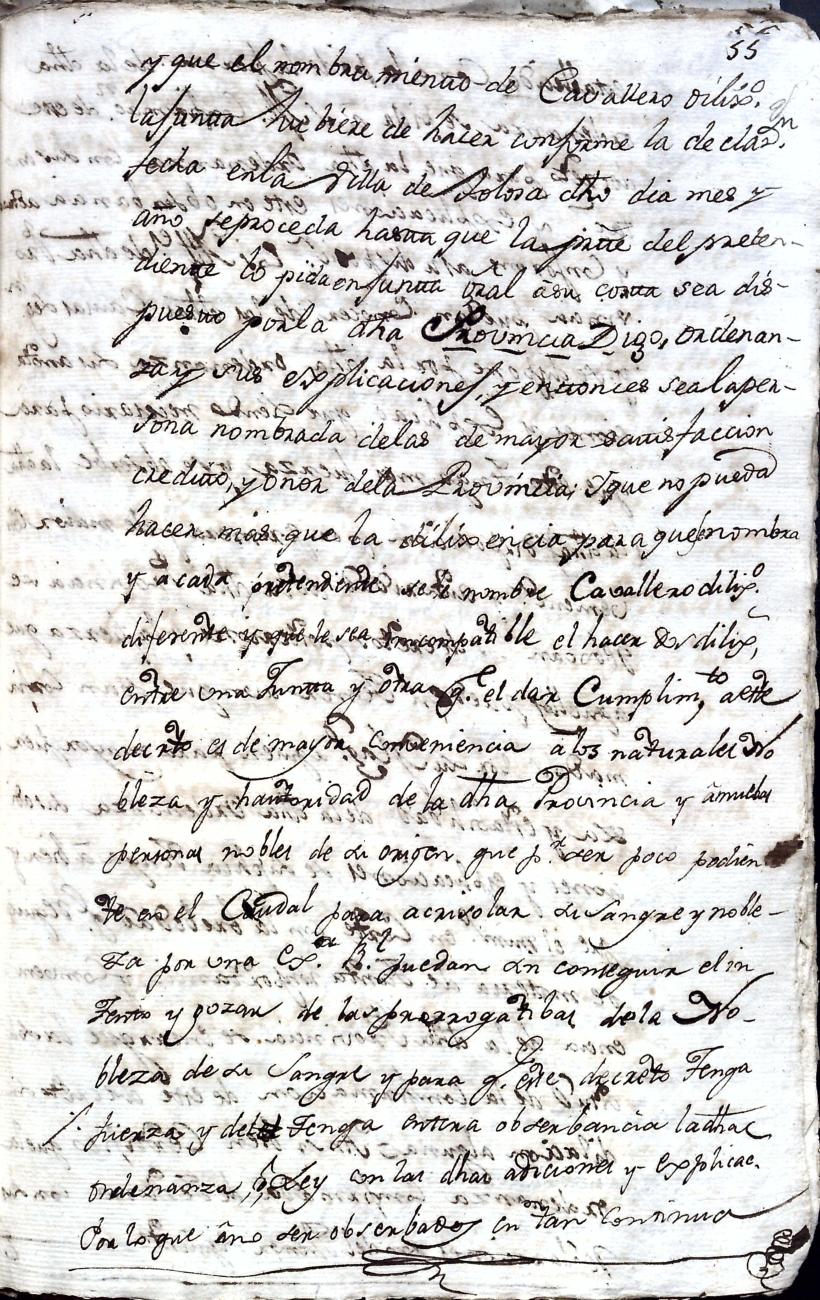 55
y que el nombramiento de Cavallero dilixo.
la Junta hubiere de hacer conforme la declaron.
fecha en la Villa de Tolosa dho dia mes y
año se proceda hasta que la parte del preten-
diente lo pida en Junta gral a su costa sea dis-
puesto por la dha Provincia Digo, ordenan-
zar y sus explicaciones, y entonces sea la per-
sona nombrada de las de mayor satisfaccion
credito, y onor de la Provincia; y que no pueda
hacer mas que la dilixencia para que se nombra
y a cada pretendiente se le nombre Cavallero dilixo.
diferente y que le sea imcompatible el hacer dos dilix,
entre una Junta y otra q.e el dar Cumplim,to a este
decreto es de mayor combeniencia a los naturales No
bleza y hautoridad de la dha Provincia y a muchas
personas nobles de su origen que p.r ser poco podien
te en el Caudal para acrisolar su Sangre y noble-
za por una ex.a R.l puedan sin conseguir el in
tento y gozar de las prerrogatibas de la No-
bleza de su Sangre y para q. este decreto Tenga
fuerza y Tenga entera obserbancia la dha
ordenanza, o Ley con las dhas adiciones y explicac.
Por lo que a no ser obserbados en tan Continua